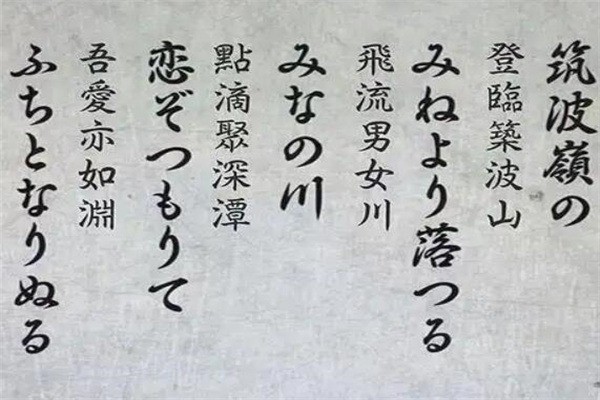 筑波嶺の
登臨築波山
みねより落つる
飛流男女川
みなの川
點滴聚深潭
恋ぞつもりて
吾愛亦如淵
ふちとなりぬる